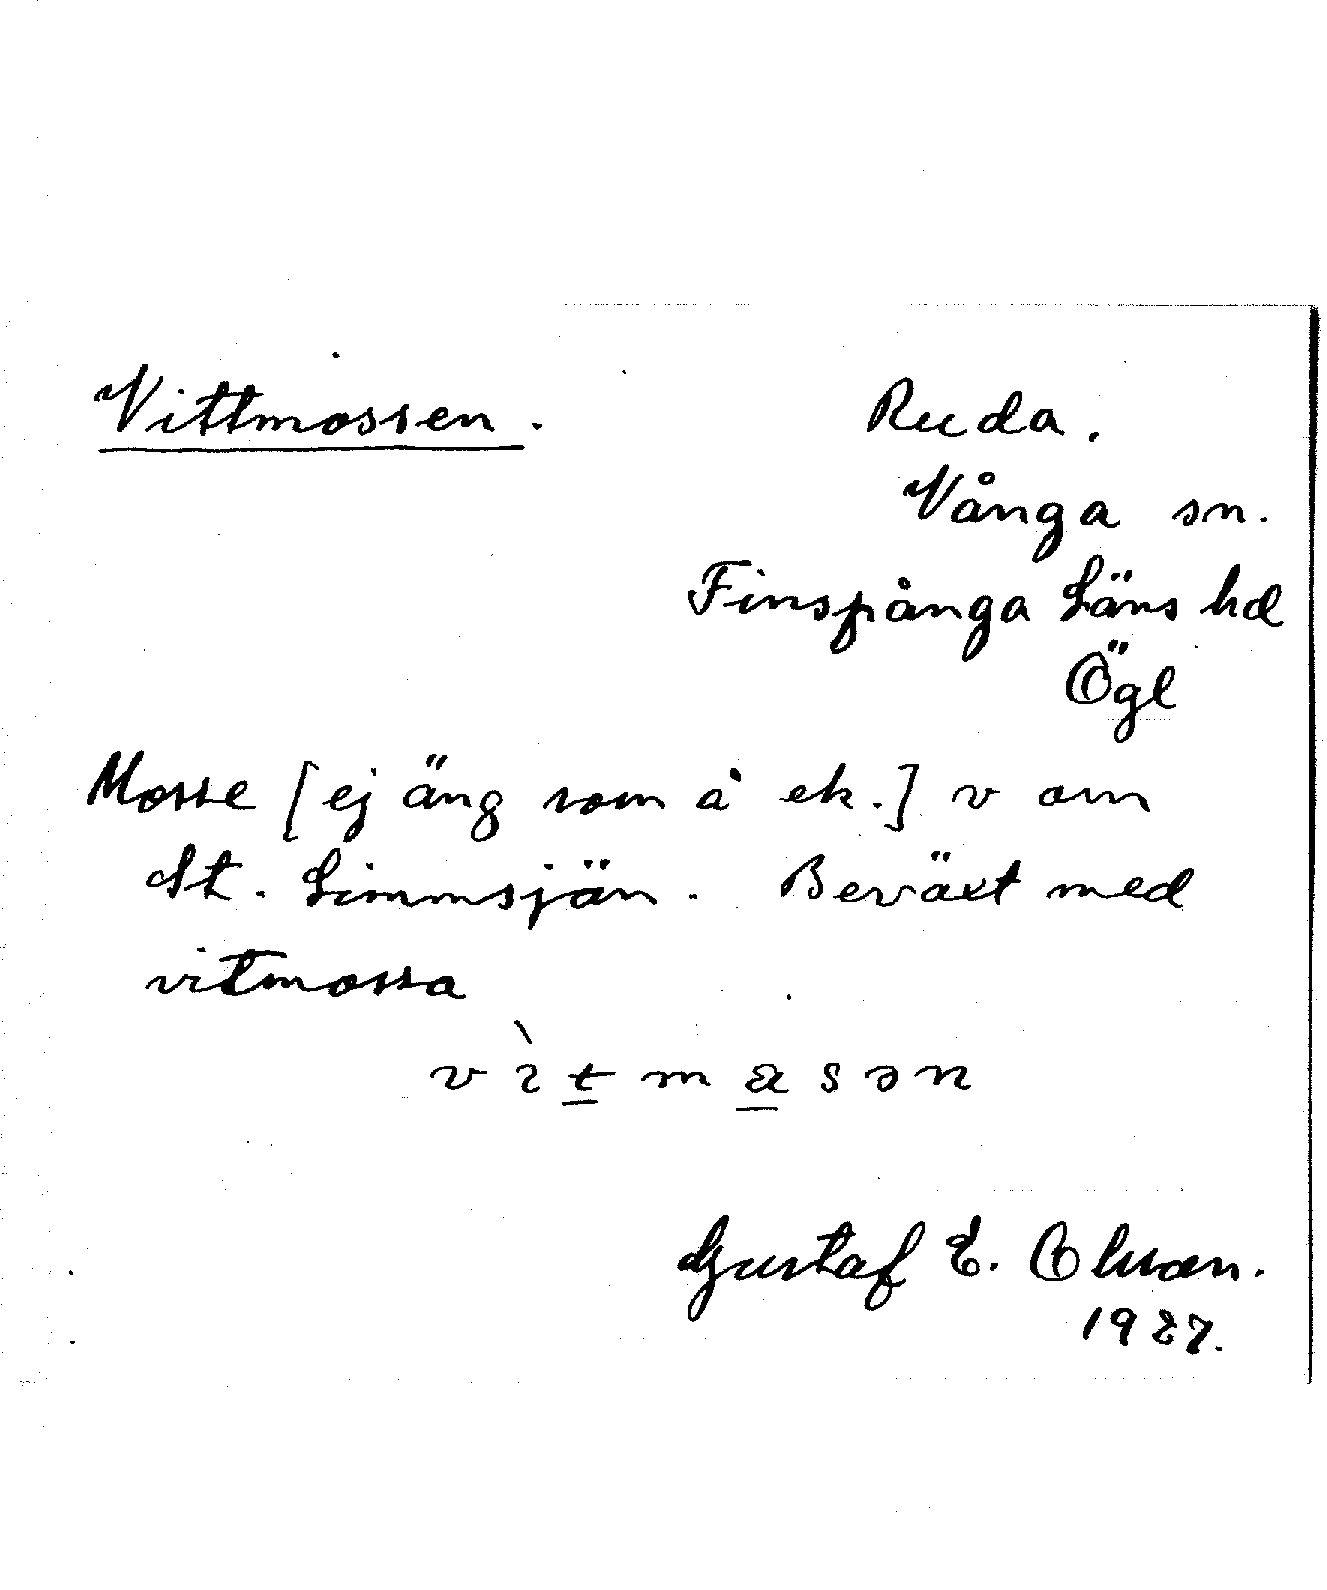 Vittmossen. Ruda.
Vånga sn.
Finspånga Läns hd
Ögl
Mosse [ej äng som å ek.] v om
St. Limmsjän. Beväxt med
vitmossa
Gustaf E. Olsson.
1927.